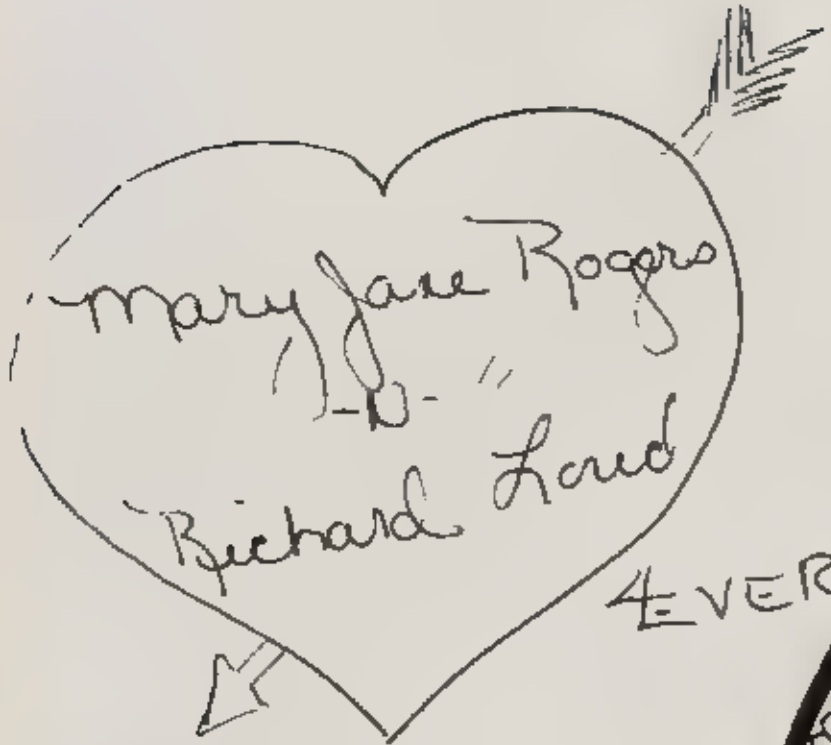 Mary Jane Rogers
-N- "
Richard Loud
4EVER